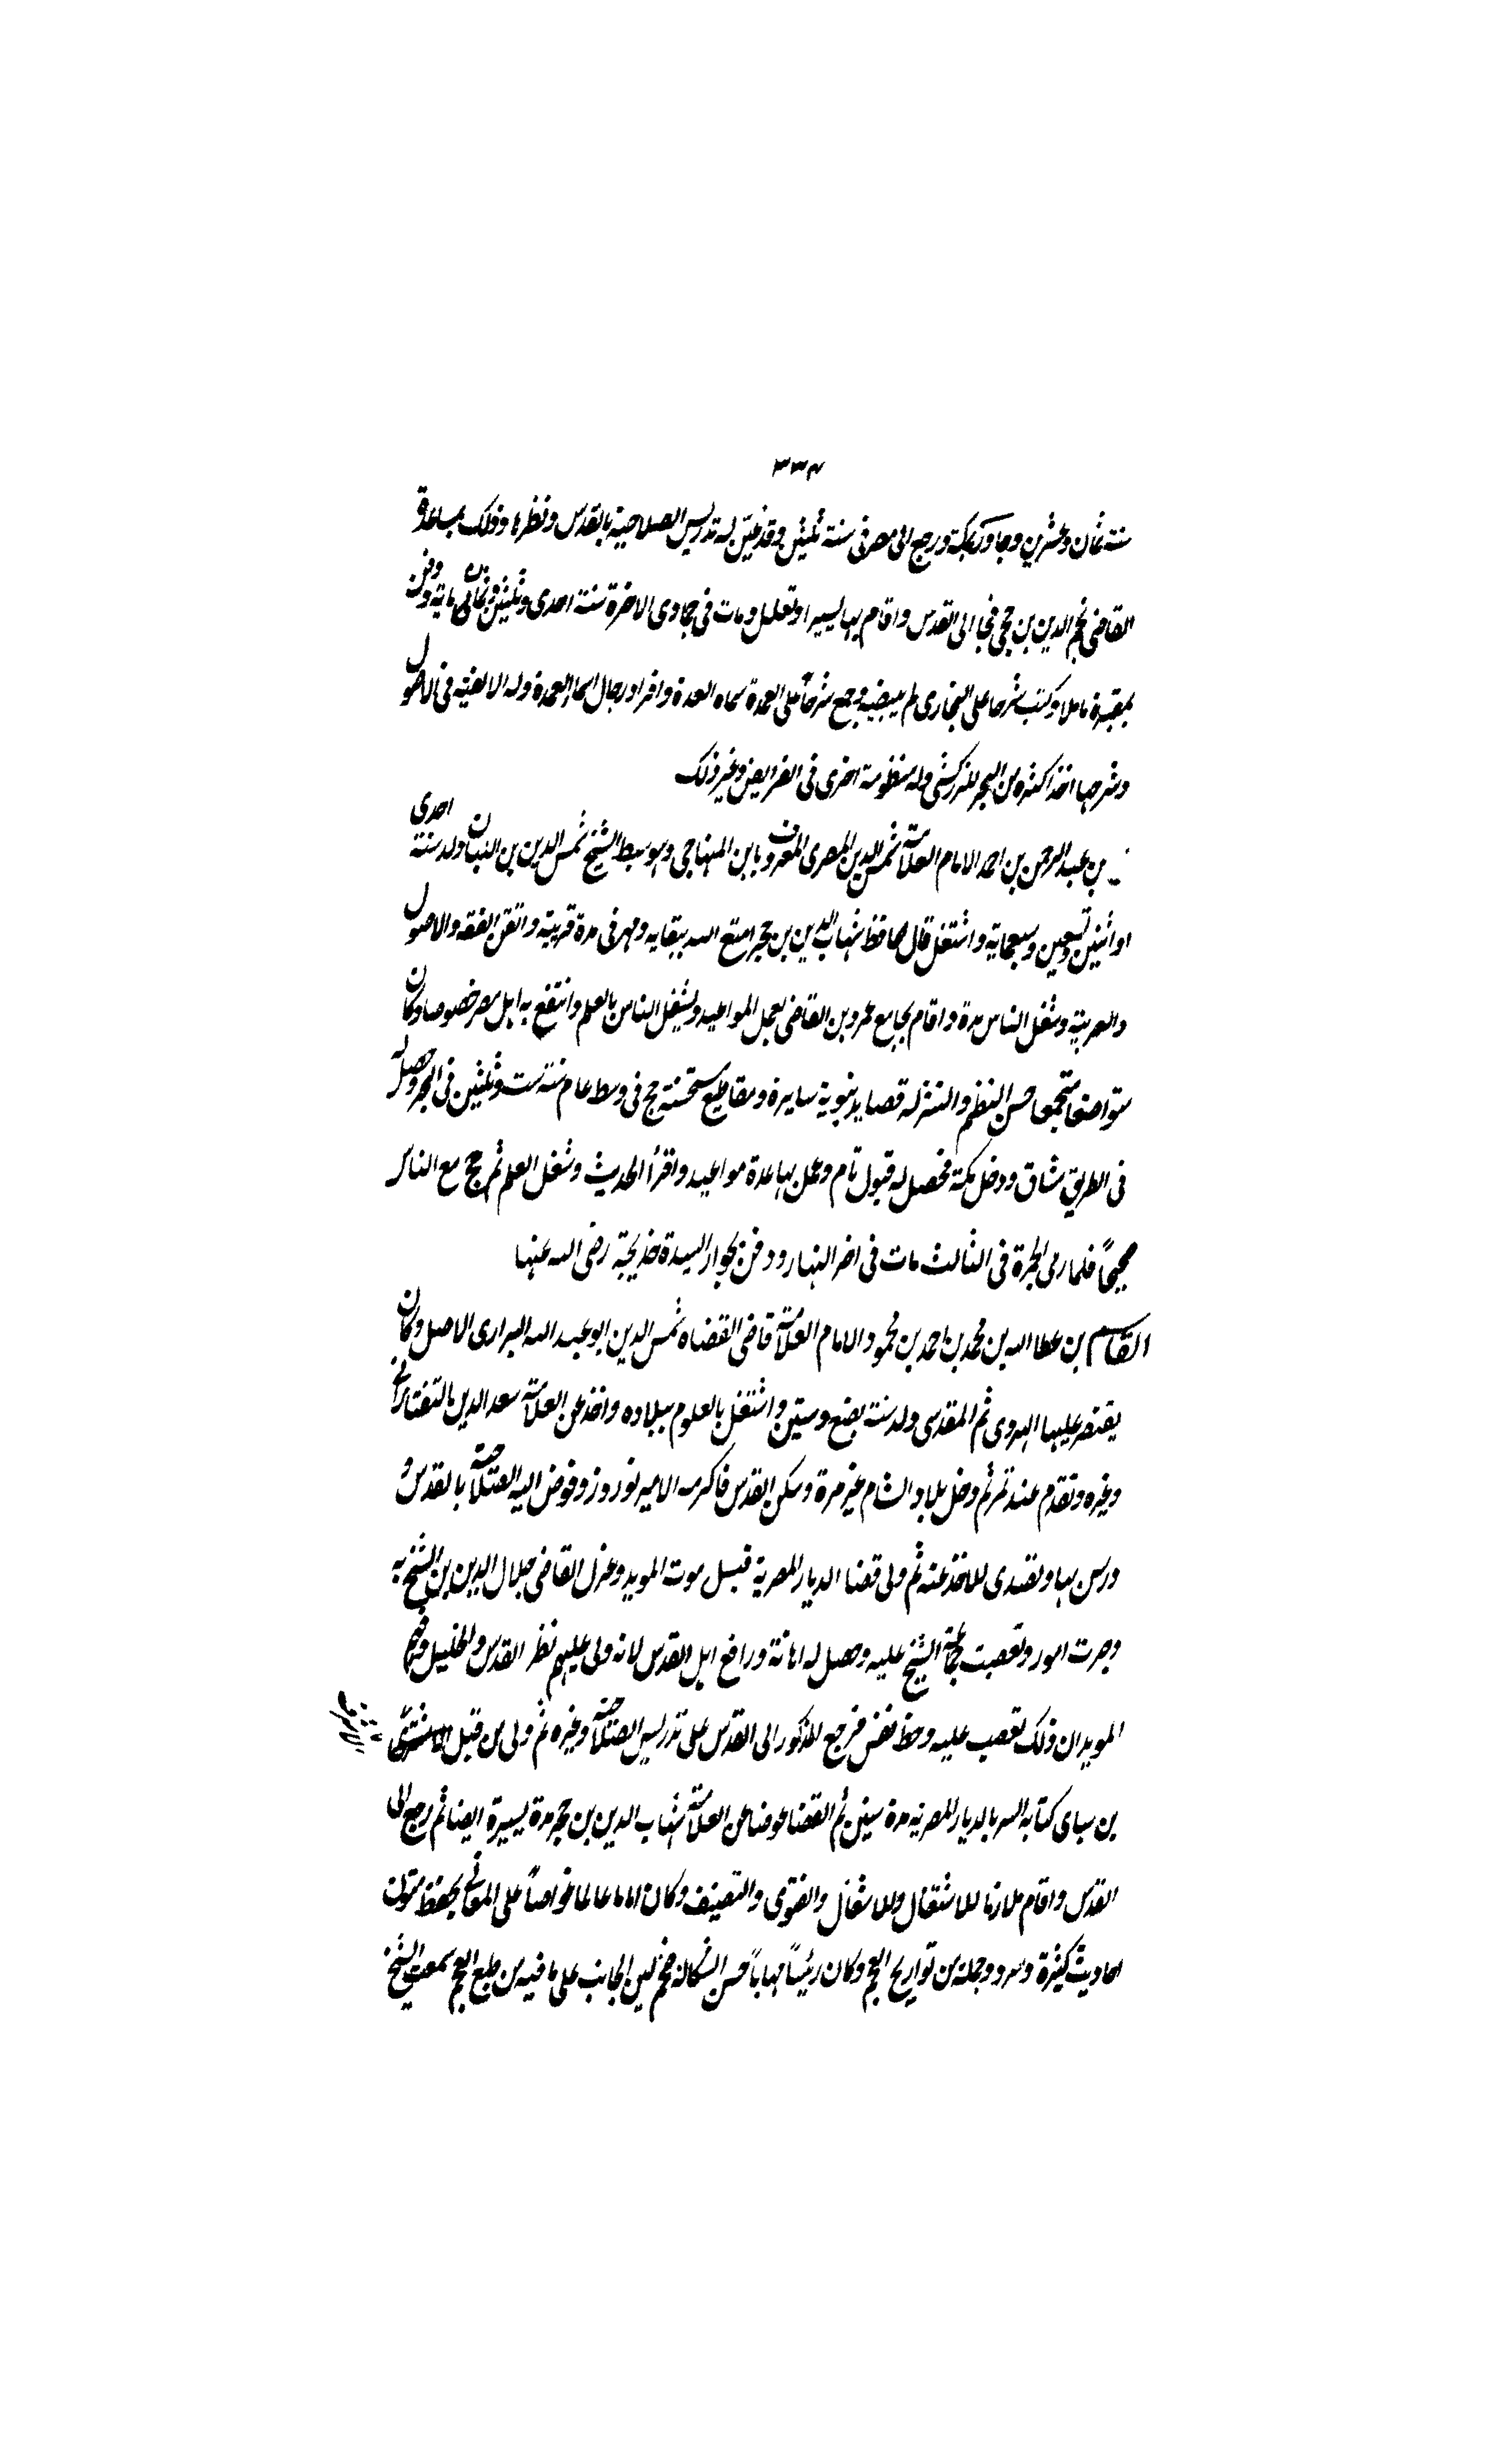 ٣٣٤
سنة ثمان وعشرين وجاور بمكة ورجع الى مصر فى سنة ثلثين وقد عين له تدريس الصلاحية بالقدس ونظرها وذلك بمساعدة
القاضى نجم الدين بن حجى فجا الى القدس واقام بها يسيرا وتعلل ومات فى جمادى الاخرة سنة احدى وثلثين وثمانى ماية ودفن
بمقبرة ماملا وكتب شرحا على البخارى لم يبيضه وجمع شرحاً على العمدة سماه العدة وافرد رجال اسما العمدة وله الالفية فى الاصول
وشرحها اخذ اكثره من البحر للزركشى وله منظومة اخرى فى الفرايض وغير ذلك
بن عبد الرحمن بن احمد الامام العلامة شمس الدين المصرى المعروف بابن المنهاجى وهو سبط الشيخ شمس الدين بن اللبان ولد سنة احدى
او اثنين وتسعين وسبعماية واشتغل قال الحافظ شهاب الدين بن حجر امتع الله ببقايه ومهر فى مدة قريبة واتقن الفقه والاصول
والعربية وشغل الناس مدة واقام بجامع عمرو بن القاضى يعمل المواعيد ويشغل الناس بالعلم وانتفع به اهل مصر خصوصا وكان
متواضعا متجمعا حسن النظم والنثر له قصايد نبوية سايرة ومقاطيع مستحسنة حج فى وسط عام سنة ست وثلثين فى البحر وحصل له
فى الطريق مشاق ودخل مكة فحصل له قبول تام وعمل بها عدة مواعيد واقرأ الحديث وشغل العلم ثم حج مع الناس
فلما رمى الجمرة فى الثالث مات فى اخر النهار ودفن بجوار السيدة خديجة رضى الله عنها
القاسم بن عطا الله بن محمد بن احمد بن محمود الامام العلامة قاضى القضاه شمس الدين ابو عبد الله الرازى الاصل وكان
يقتصر عليها الهروى ثم المقدسى ولد سنة بضع وستين واشتغل بالعلوم ببلاده واخذ عن العلامة سعد الدين التفتازانى
وغيره وتقدم عند تمر ثم دخل بلاد الشام غير مرة وسكن القدس فاكرمه الامير نوروز وفوض اليه الصلاحية بالقدس و
درس بها وتصدى للاخذ عنه ثم ولى قضا الديار المصرية قبل موت المويد وعزل القاضى جلال الدين بن الشيخ به
وجرت امور وتعصبت جماعة الشيخ عليه وحصل له اهانة ورافع اهل القدس لانه ولى عليهم نظر القدس والخليل وفهم
المويد ان ذلك تعصب عليه وحظ نفس فرجع المذكور الى القدس على تدريس الصلاحية وغيره ثم ولى من قبل الاشرف
بن سباى كتابه السر بالديار المصرية مدة سنين ثم القضا عوضا عن العلامة شهاب الدين بن حجر مدة يسيرة ايضا ثم رجع الى
القدس واقام ملازما للاشتغال وللاشغال والفتوى والتصنيف وكان اماما عالما غواصاً على المعانى يحفظ متون
احاديث كثيرة وسرد وجملة من تواريخ العجم وكان رئيساً مهاباً حسن الشكالة ضخم لين الجانب على ما فيه من طبع العجم سمعت الشيخ